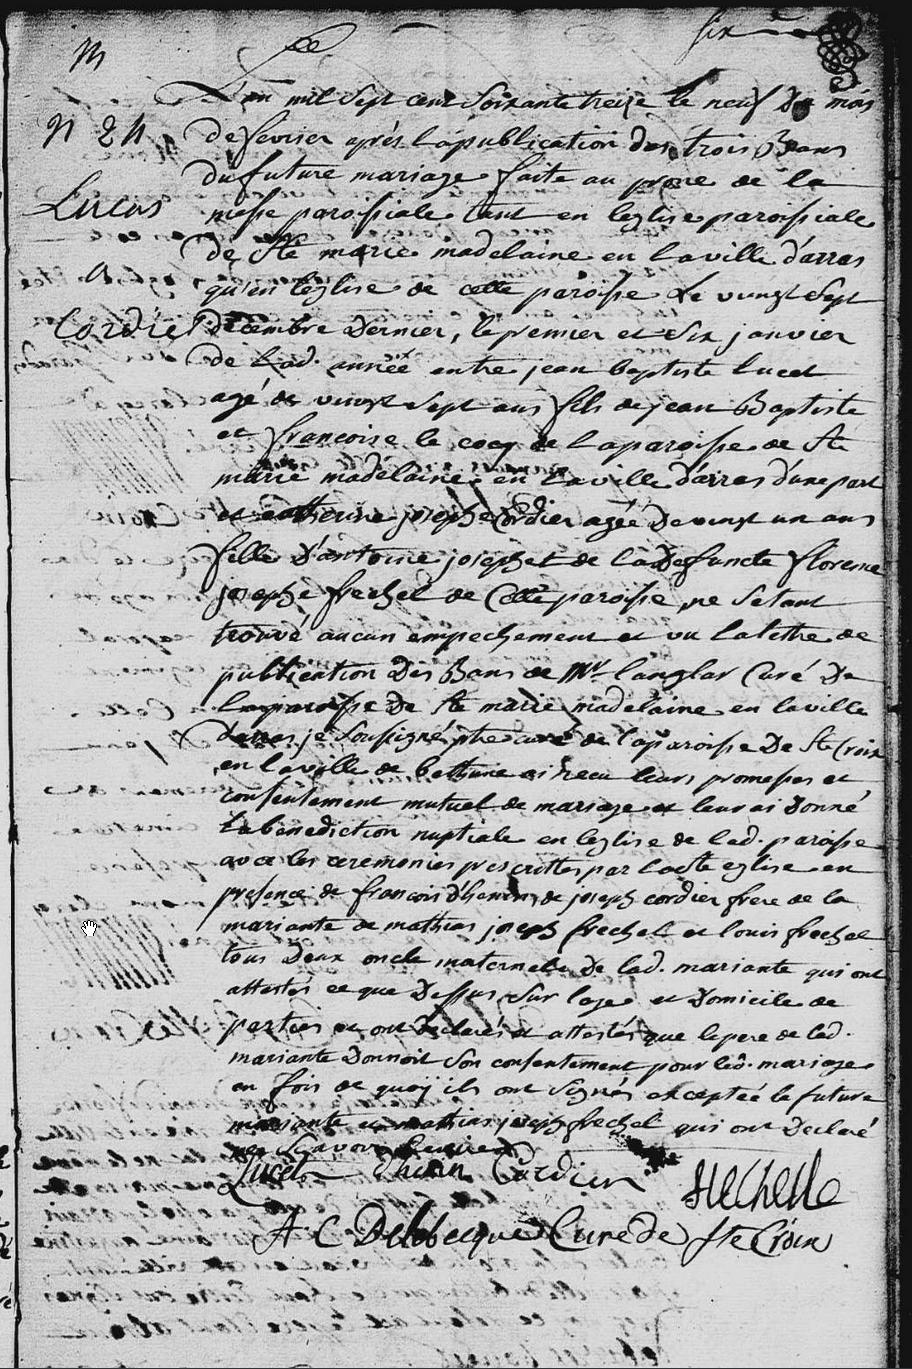 six
M
N 24
Lucas
a
Cordier
L'an mil sept cent soixante treize le neuf du mois
de fevrier après la publication des trois Bans
du future mariage faite au prone de la
messe paroissiale tant en leglise paroissiale
de Ste marie madelaine en la ville d'arras
qu'en leglise de cette paroisse Le vingt sept
decembre dernier, le premier et six janvier
de Lad. année entre jean baptiste Lucet
agé de vingt sept ans fils de jean Baptiste
et francoise le cocq de la paroisse de Ste
marie madelaine en la ville d'arras d'une part
et catherine josephe Cordier agée De vingt un ans
fille D'antoine joseph et de la Defuncte florence
josephe frechel de Cette paroisse ne setant
trouvé aucun empechement et vu la lettre de
publication Des Bans de Mr langlar Curé De
la paroisse De Ste marie madelaine en la ville
darras je soussigné ptre curé de la paroisse De Ste Croix
en la ville de bethune ai recu leurs promesses et
consentement mutuel de mariage et leur ai Donné
la benediction nuptiale en leglise de lad. paroisse
avec les ceremonies prescrittes par eglise en
presence de francois d'henin, de joseph cordier frere de la
mariante de mathias joseph frechel et louis frechel
tous Deux oncle maternele De lad. mariante qui ont
attestés ce que Dessus sur lage et Domicile de
parties et ont Declarés et attestés que le pere de lad.
mariante Donnoit son consentement pour led. mariage
en fois de quoy ils ont signés exceptée le future
mariante et mathias joseph frechel qui ont Declaré
ne scavoir
Lucet d'henin Cordier frechelle
A C Delbecque Cure de Ste Croix